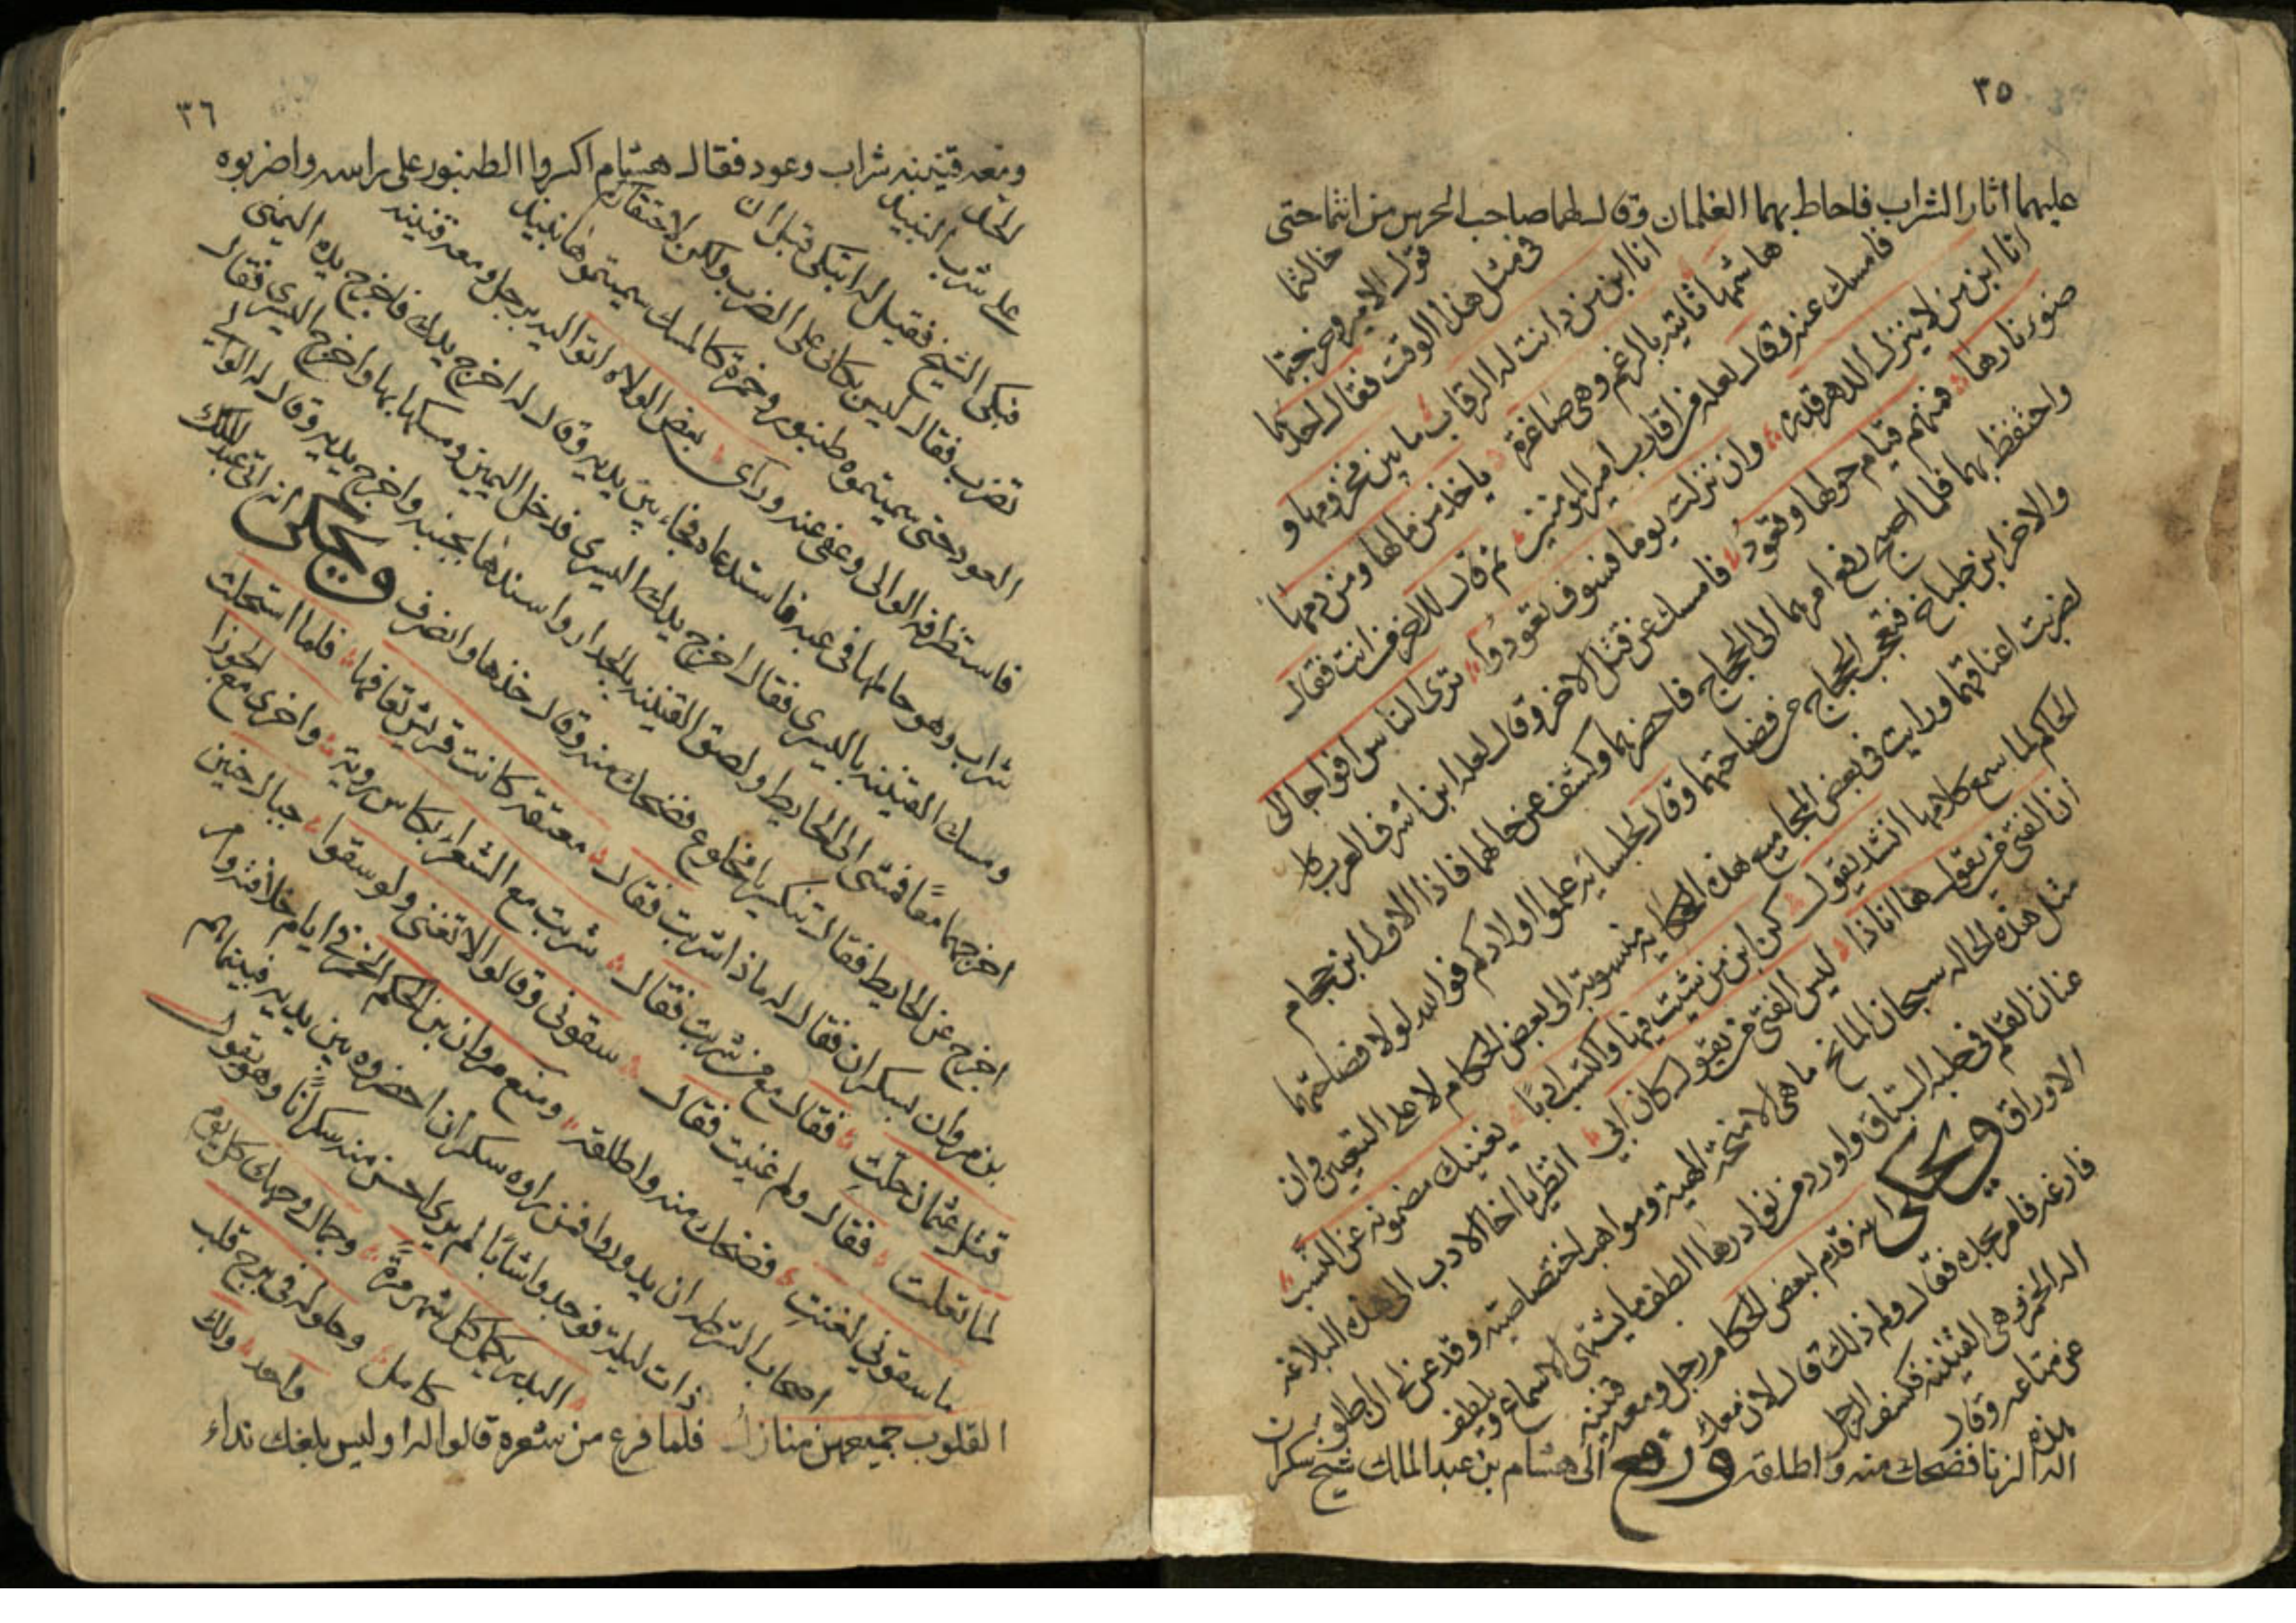 ٣٥
عليهما اثار الشراب فاحاط بهما الغلمان وقال لهما صاحب الحرس من انتما حتى
خالفتما
قول الامير وخرجتما
في مثل هذا الوقت فقال احدهما
انا ابن من دانت له الرقاب ما بين مخزومها و
هاشمها تاتيه بالرغم وهي صاغرة ياخذ من مالها ومن دمها
فامسك عنه وقال لعله من اقارب امير المومنين ثم قال للاخر من انت فقال
انا ابن من لا ينزل الدهر قدره وان نزلت يوما فسوف تعود ترى الناس افواجا الى
ضوء نارها فمنهم قيام حولها وقعود فامسك عن قتل الاخر وقال لعله ابن اشرف العرب
واحتفظ بهما فلما اصبح رفع امرهما الى الحجاج فاحضرهما وكشف عن حالهما فاذا الاول ابن حجام
والاخر ابن طباخ فتعجب الحجاج من فصاحتهما وقال لجلسائه علموا اولادكم فوالله لولا فصاحتهما
لضربت اعناقهما ورايت في بعض المجاميع هذه الحكاية منسوبة الى بعض الحكام لا على التعيين وان
الحاكم لما سمع كلامهما انشد يقول كن ابن من شئت واكتسب ادبا يغنيك مضمونه عن النسب
ان الفتى من يقول ها انا ذا ليس الفتى من يقول كان ابي انظر يا اخا الادب الى هذه البلاغه
مثل هذه الحاله سبحان المانح ما هي الا منحة الهية ومواهب اختصاصية وقد عن لي ان اطلق
عنان القلم في حلبة السباق واورد من نوادرها الطف ما يشتهى الاسماع ويلطف
الاوراق ويحكى انه قدم لبعض الحكام رجل ومعه قنينه
فارغه فامر بحده فقال ولم ذلك قال لان معك
الة الخمر وهي القنينه فكشف الرجل
عن متاعه وقال
هذه
الة الزنا فضحك منه واطلقه ورفع الى هشام بن عبد الملك شيخ سكران
٣٦
ومعه قنينه شراب وعود فقال هشام اكسروا الطنبور على راسه واضربوه
الحد
على شرب النبيذ
فبكى الشيخ فقيل له اتبكي قبل ان
تضرب فقال ليس بكائي على الضرب ولكن لاحتقاركم
العود حتى سميتموه طنبور وخمرة كالمسك سميتموها نبيذ
فاستظرفه الوالي وعفي عنه وراى بعض الولاه اتوا اليه برجل ومعه قنينه
شراب وهو حاملها في عبه فاستدعاه فجاء بين يديه وقال له اخرج يدك فاخرج يده اليمنى
ومسك القنينه باليسرى فقال اخرج يدك اليسرى فدخل اليمين ومسكها بها واخرج اليسرى فقال
اخرجهما معا فمشى الى الحايط ولصق القنينه بالجدار واسندها بجنبه واخرج يديه وقال له الوالي
اخرج عن الحايط فقال تنكسر يا مخلوع فضحك منه وقال خذها وانصرف ويحكى انه اتي عبد الملك
بن مروان بسكران فقال له ماذا شربت فقال معتقة كانت قريش تعافها فلما استحلت
قتل عثمان حلت فقال مع من شربت فقال شربت مع الشعراء بكاس روية واخرى مع الجوزا
لما تعلت فقال ولم غنيت فقال سقوني وقالوا لا تغني ولو سقوا جبال حنين
ما سقوني لغنت فضحك منه واطلقه ومنع مروان بن الحكم الخمر في ايام خلافته وامر
اصحاب الشرطه ان يدوروا فمن راوه سكران احضروه بين يديه فبينما هم
ذات ليلة فوجدوا شابا لم يرى احسن منه سكرانا وهو يقول
البدر يكمل كل شهر مرة وجمال وجهك كل يوم
كامل وحلوله في برج قلب
واحد ولك
القلوب جميعهن منازل فلما فرغ من شعره قالوا له اوليس بلغك نداء